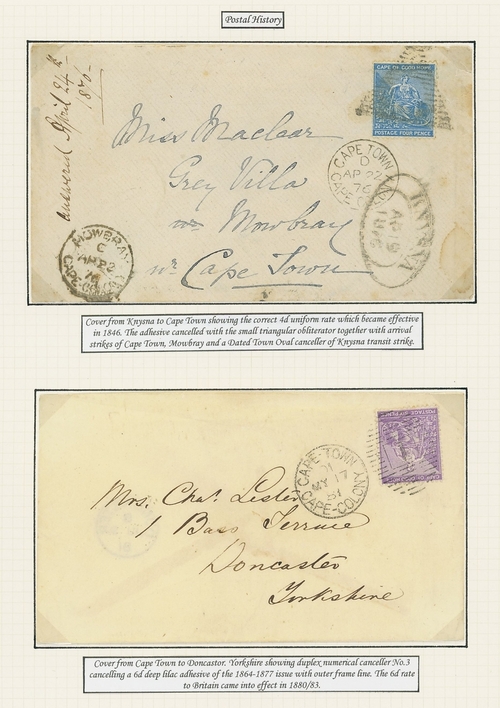 Postal History
answered April 24th
1876
CAPE OF GOOD HOPE
POSTAGE FOUR PENCE
Miss Maclear
Grey Villa
nr Mowbray
nr Cape Town
CAPE TOWN
D
AP 22
76
CAPE-COLONY
KNYSNA
AP 19
1876
MOWBRAY
C
AP 22
76
CAPE-COLONY
Cover from Knysna to Cape Town showing the correct 4d uniform rate which became effective
in 1846. The adhesive cancelled with the small triangular obliterator together with arrival
strikes of Cape Town, Mowbray and a Dated Town Oval canceller of Knysna transit strike.
POSTAGE SIX PENCE
CAPE TOWN
MY 17
81
CAPE-COLONY
Mrs. Chas. Lester
1 Bass Terrace
Doncaster
Yorkshire
Cover from Cape Town to Doncastor. Yorkshire showing duplex numerical canceller No.3
cancelling a 6d deep lilac adhesive of the 1864-1877 issue with outer frame line. The 6d rate
to Britain came into effect in 1880/83.